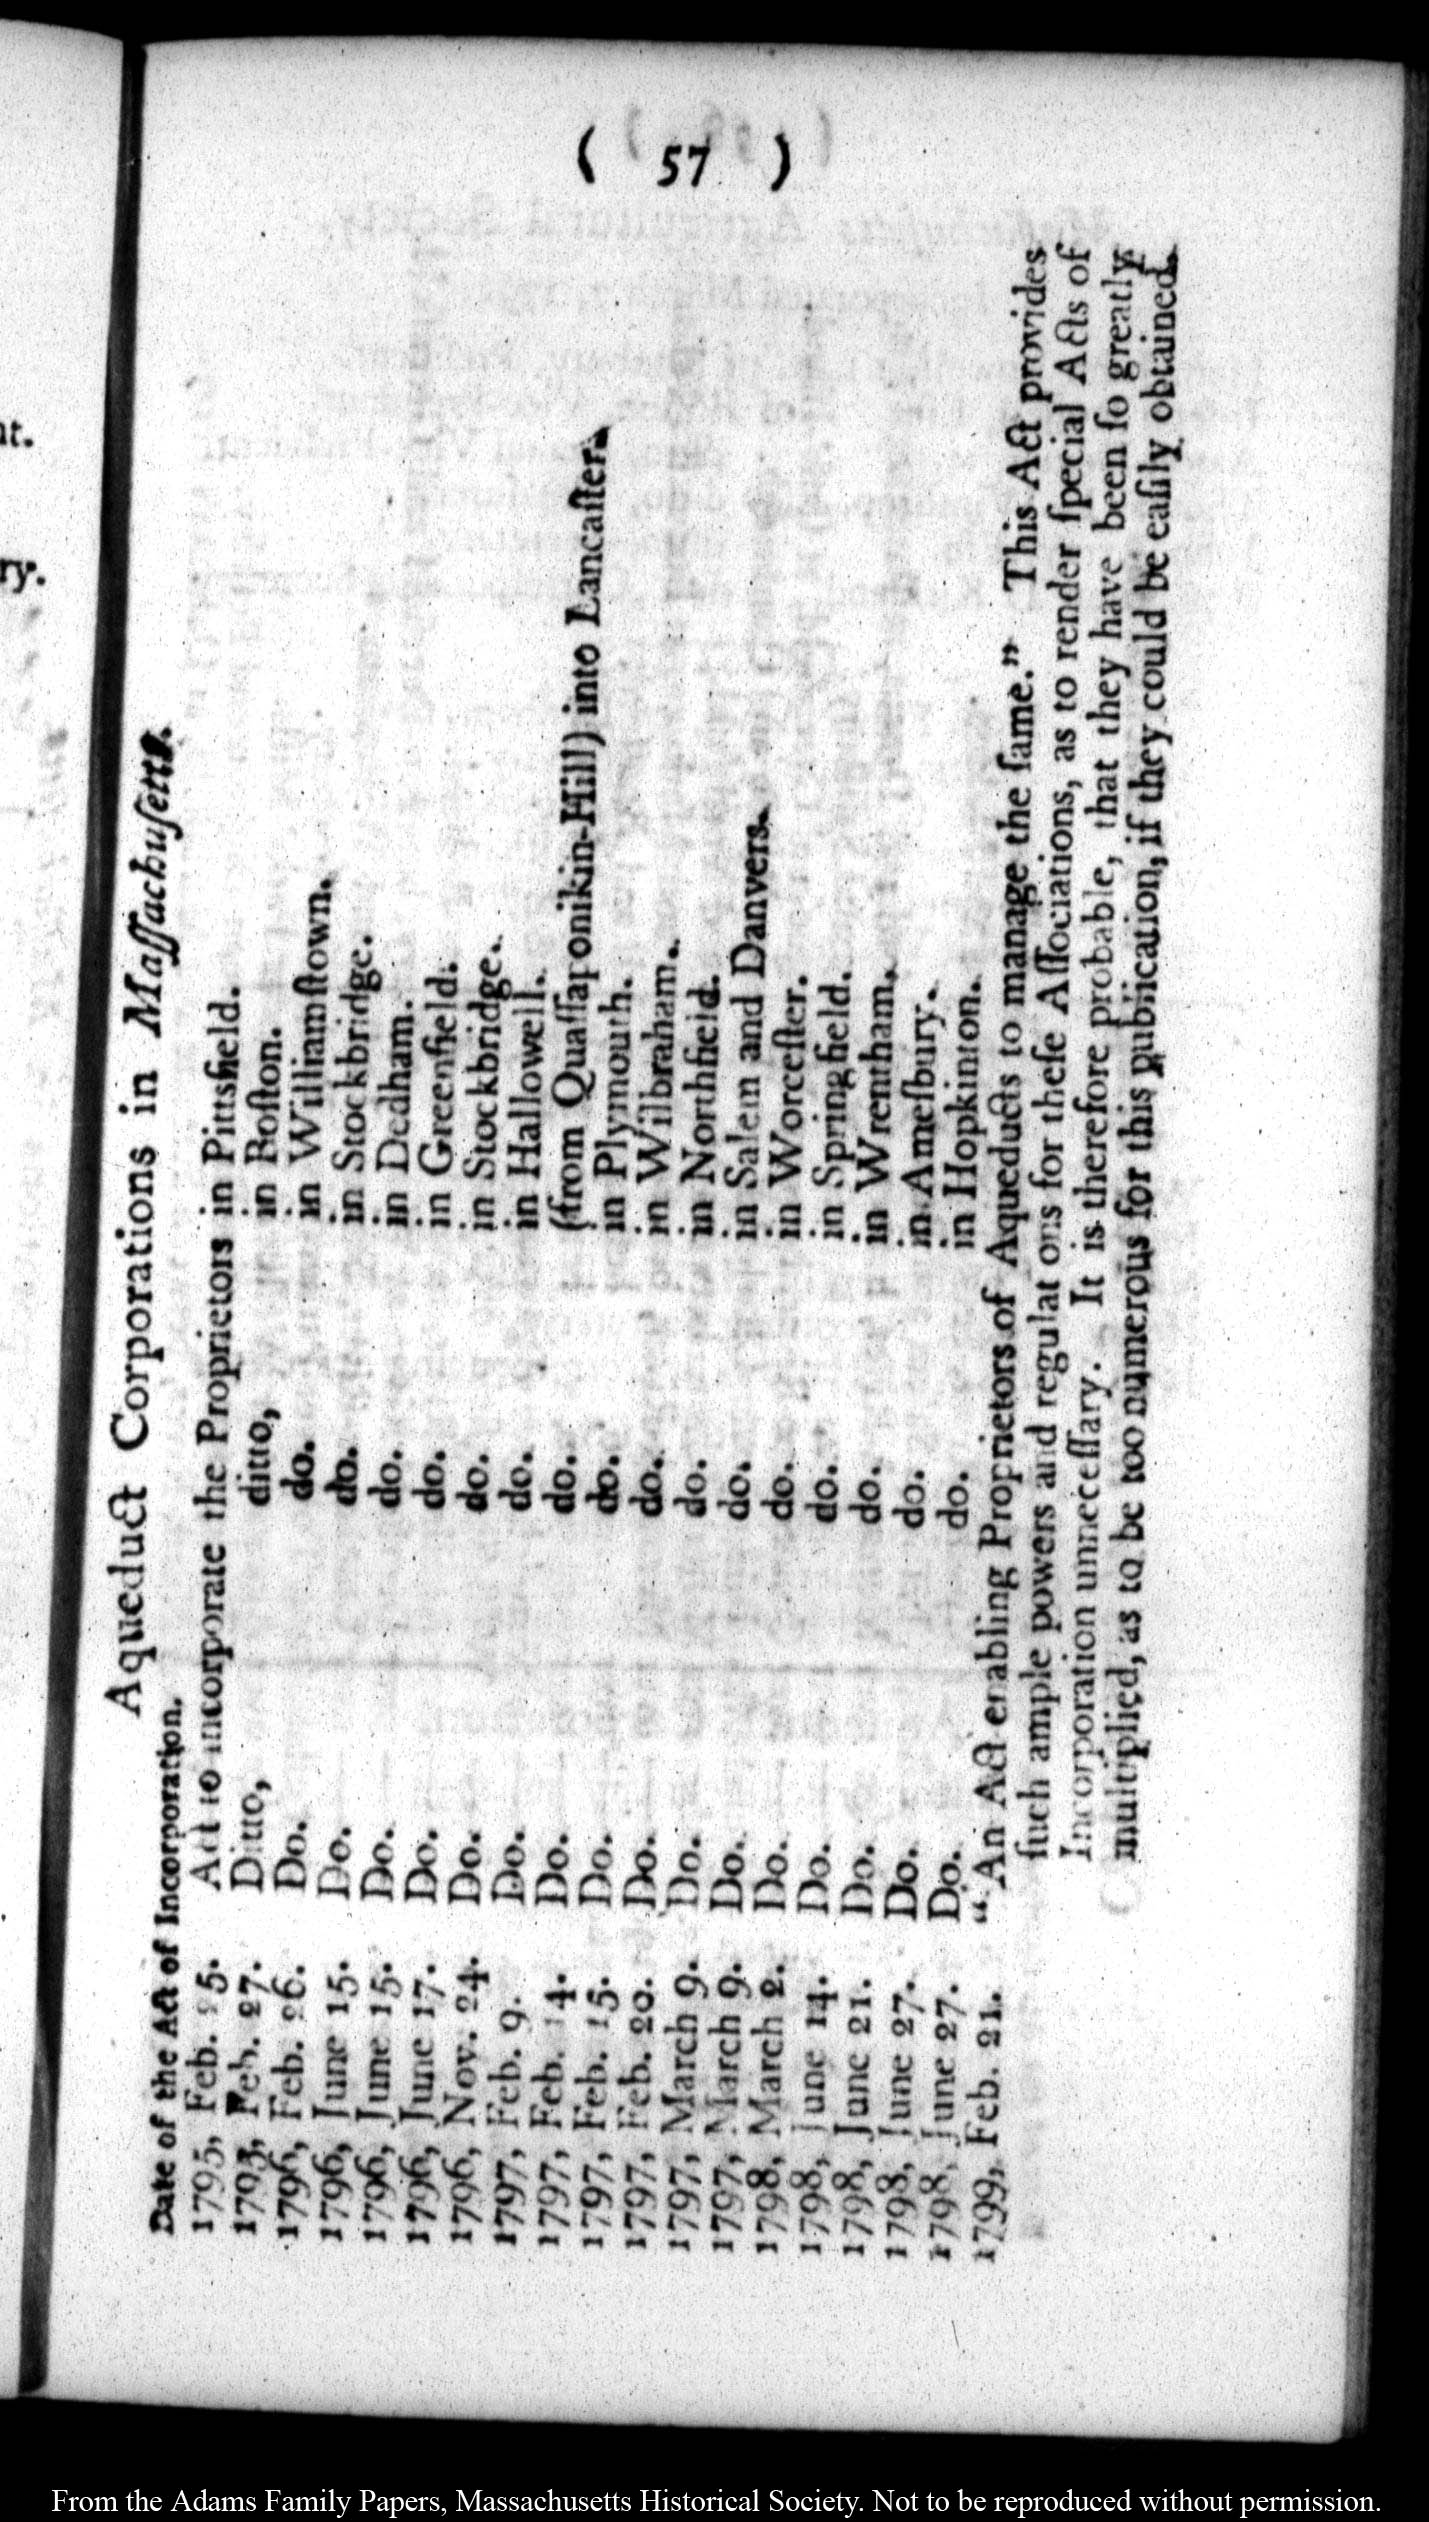 ( 57 )
Aqueduct Corporations in Maſſachuſetts.
Date of the Act of Incorporation.
1795, Feb. 25. Act to incorporate the Proprietors in Pittsfield.
1795, Feb. 27. Ditto, ditto, in Boſton.
1796, Feb. 26. Do. do. in Williamſtown.
1796, June 15. Do. do. in Stockbridge.
1796, June 15. Do. do. in Dedham.
1796, June 17. Do. do. in Greenfield.
1796, Nov. 24. Do. do. in Stockbridge.
1797, Feb. 9. Do. do. in Hallowell.
1797, Feb. 14. Do. do. (from Quaſſaponikin-Hill) into Lancaſter.
1797, Feb. 15. Do. do. in Plymouth.
1797, Feb. 20. Do. do. in Wilbraham.
1797, March 9. Do. do. in Northfield.
1797, March 9. Do. do. in Salem and Danvers.
1798, March 2. Do. do. in Worceſter.
1798, June 14. Do. do. in Springfield.
1798, June 21. Do. do. in Wrentham.
1798, June 27. Do. do. in Ameſbury.
1798, June 27. Do. do. in Hopkinton.
1799, Feb. 21. “An Act enabling Proprietors of Aqueducts to manage the ſame.” This Act provides
ſuch ample powers and regulations for theſe Aſſociations, as to render ſpecial Acts of
Incorporation unneceſſary. It is therefore probable, that they have been ſo greatly
multiplied, as to be too numerous for this publication, if they could be eaſily obtained.
From the Adams Family Papers, Massachusetts Historical Society. Not to be reproduced without permission.